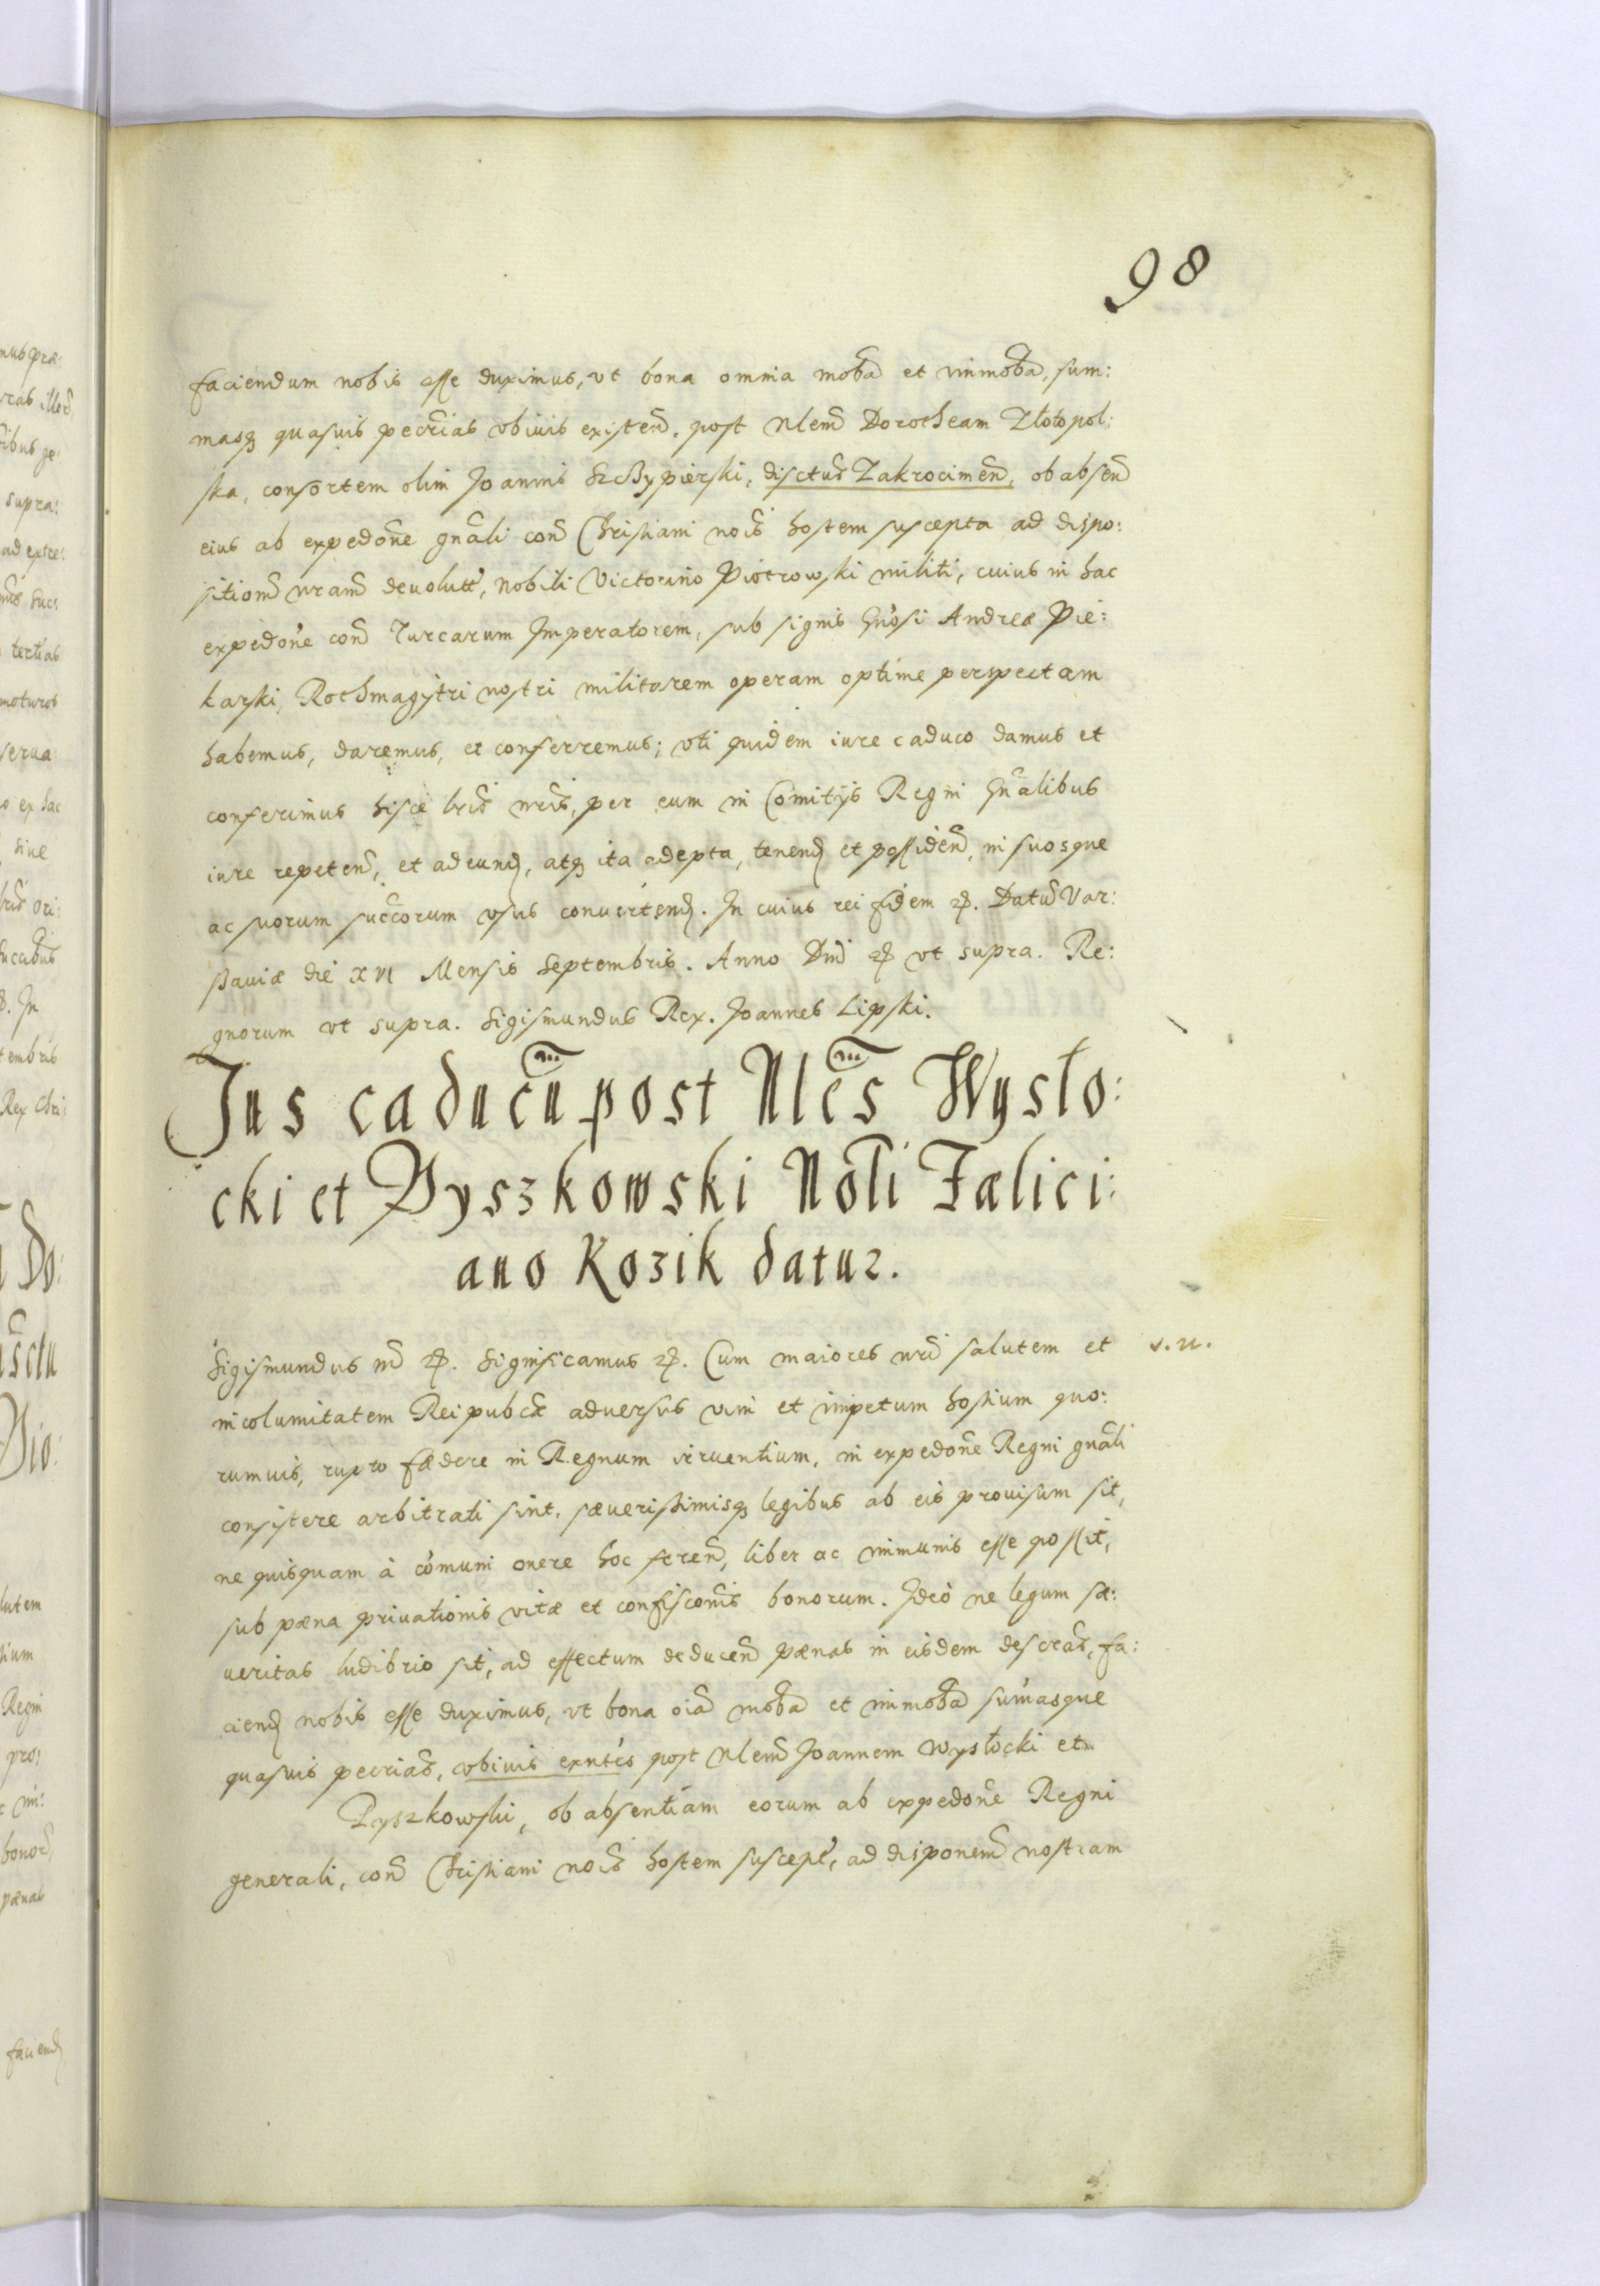 98
faciendum nobis esse duximus, vt bona omnia moba et immoba, sum:
masq quasuis pecrias vbiuis existen. post Nlem Dorotheam Złotopol:
ska, consortem olim Joannis Szczypierski, disctus Zakrocimen, ob absen
eius ab expedone gnali con Christiani nois hostem suscepta ad dispo:
sitiom nram deuolutt, Nobili Victorino Piotrowski militi, cuius in hac
expedone con Turcarum Imperatorem, sub signis Gnosi Andreæ Pie:
karski, Rothmagistri nostri militarem operam optime perspectam
habemus, daremus, et conferremus; vti quidem iure caduco damus et
conferimus hisce lris nris, per eum in Comitijs Regni Gnalibus
iure repeten, et adeund, atq ita adepta, tenend et possiden, in suosque
ac suorum succorum vsus conuertend. In cuius rei fidem etc. Datu Var:
sauiæ die XVI Mensis Septembris. Anno Dni etc vt supra. Re:
gnorum vt supra. Sigismundus Rex. Joannes Lipski.
Jus caducu post Nles Wysło:
cki et Pyszkowski Noli Fælici:
ano Kozik datur.
Sigismundus III etc. Significamus etc. Cum maiores nri salutem et
incolumitatem Reipubcæ aduersus vim et impetum hostium quo:
rumuis, rupto fædere in Regnum irruentium, in expedone Regni gnali
consistere arbitrati sint, sæuerissimisq legibus ab eis prouisum sit,
ne quisquam à comuni onere hoc feren, liber ac immunis esse possit,
sub pæna priuationis vitæ et confisconis bonorum. Ideo ne legum sæ:
ueritas ludibrio sit, ad effectum deducen pænas in eisdem descras, fa:
ciend nobis esse duximus, vt bona oia moba et immoba sumasque
quasuis pecrias, vbiuis exntes post Nlem Joannem Wysłocki et
Pyszkowski, ob absentiam eorum ab expedone Regni
generali, con Christiani nois hostem suscept, ad disponem nostram